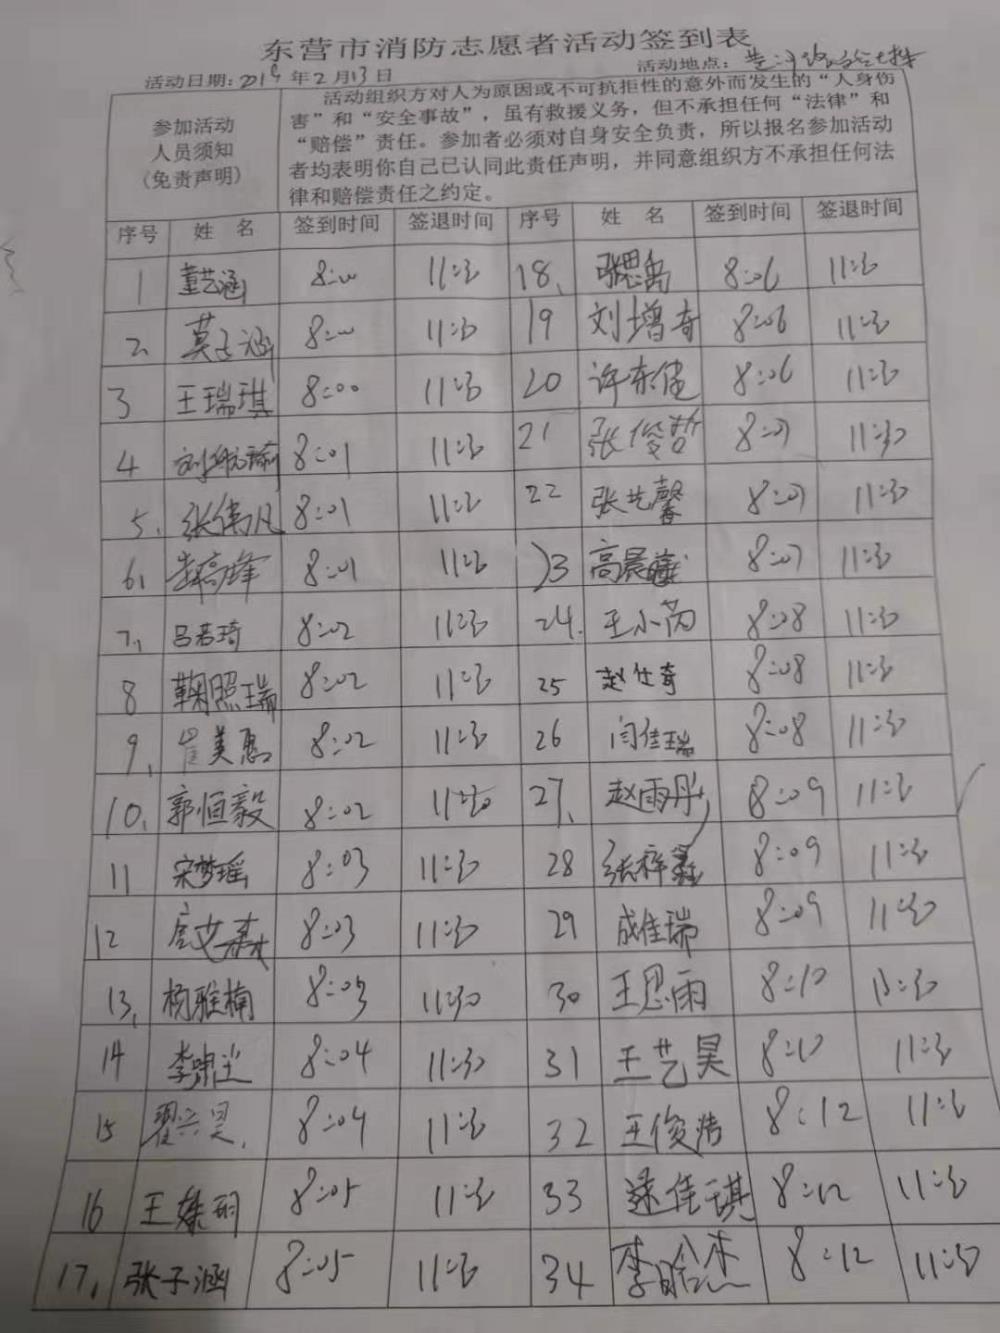 东营市消防志愿者活动签到表
活动日期：2019年2月13日 活动地点：
参加活动
人员须知
（免责声明）
活动组织方对人为原因或不可抗拒性的意外而发生的“人身伤
害”和“安全事故”，虽有救援义务，但不承担任何“法律”和
“赔偿”责任。参加者必须对自身安全负责，所以报名参加活动
者均表明你自己已认同此责任声明，并同意组织方不承担任何法
律和赔偿责任之约定。
序号 姓 名 签到时间 签退时间 序号 姓 名 签到时间 签退时间
1 董艺涵 8:00 11:30 18. 张思禹 8:06 11:30
2. 莫子涵 8:00 11:30 19 刘增奇 8:06 11:30
3 王瑞琪 8:00 11:30 20 许东佳 8:06 11:30
4 8:01 11:30 21 张俊哲 8:07 11:30
5. 张伟凡 8:01 11:30 22 张艺馨 8:07 11:30
6. 8:01 11:30 23 高晨曦 8:07 11:30
7. 吕若琦 8:02 11:30 24. 王小芮 8:08 11:30
8 鞠照瑞 8:02 11:30 25 赵仕奇 8:08 11:30
9. 崔美惠 8:02 11:30 26 闫佳瑞 8:08 11:30
10. 郭恒毅 8:02 11:30 27. 赵雨彤 8:09 11:30
11 宋梦瑶 8:03 11:30 28 张梓鑫 8:09 11:30
12 8:03 11:30 29 成佳瑞 8:09 11:30
13. 杨雅楠 8:03 11:30 30 王思雨 8:10 11:30
14 8:04 11:30 31 王艺昊 8:10 11:30
15 翟兴昊. 8:04 11:30 32 8:12 11:30
16 8:05 11:30 33 逯佳琪 8:12 11:30
17. 张子涵 8:05 11:30 34 8:12 11:30